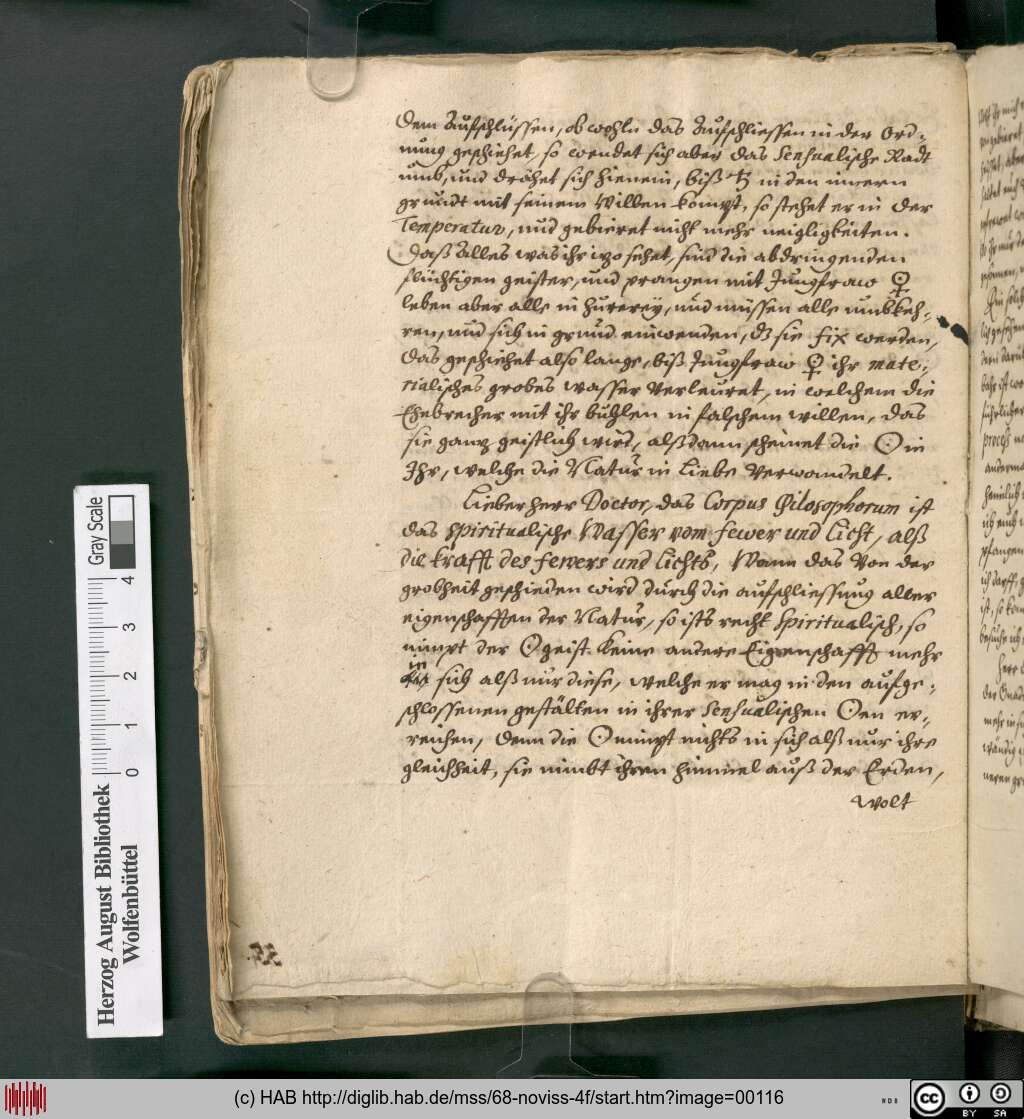 dem Aufschlüssen, ob wohln das Aufschliessen in der Ord-
nung geschiehet, so wendet sich aber das Sensualische Radt
umb, und drähet sich hienein, biß ♄ in den innern
grundt mit seinem Willen kompt, so stehet er in der
Temperatur, und gebieret nicht mehr neigligkeiten.
Daß alles was ihr izo sehet, sind die abdringenden
flüchtigen geister, und prangen mit Jungfraw ♀
leben aber alle in hurerey, und müssen alle umbkeh-
ren, und sich in grund einwenden, dz sie fix werden,
das geschiehet also lange, biß Jungfraw ♀ ihr mate-
rialisches grobes wasser verleuret, in welchem die
Ehebrecher mit ihr buhlen in falschem willen, das
sie ganz geistlich wird, alßdann scheinet die ☉ in
Ihr, welche die Natur in Liebe verwandelt.
Lieber herr Doctor, das Corpus Philosophorum ist
das spiritualische Wasser vom fewer und Licht, alß
die krafft des fewers und Lichts, Wann das von der
grobheit geschieden wird durch die aufschliessung aller
eigenschafften der Natur, so ists recht Spiritualisch, so
nimpt der ☉ geist keine andere Eigenschafft mehr
in sich alß nur diese, welche er mag in den aufge-
schlossenen gestälten in ihrer Sensualischen ☉en er-
reichen, denn die ☉ nimpt nichts in sich alß nur ihre
gleichheit, sie nimbt ihren himmel auß der Erden,
wolt
Herzog August Bibliothek
Wolfenbüttel
0 1 2 3 4
Gray Scale
(c) HAB http://diglib.hab.de/mss/68-noviss-4f/start.htm?image=00116
cc BY SA